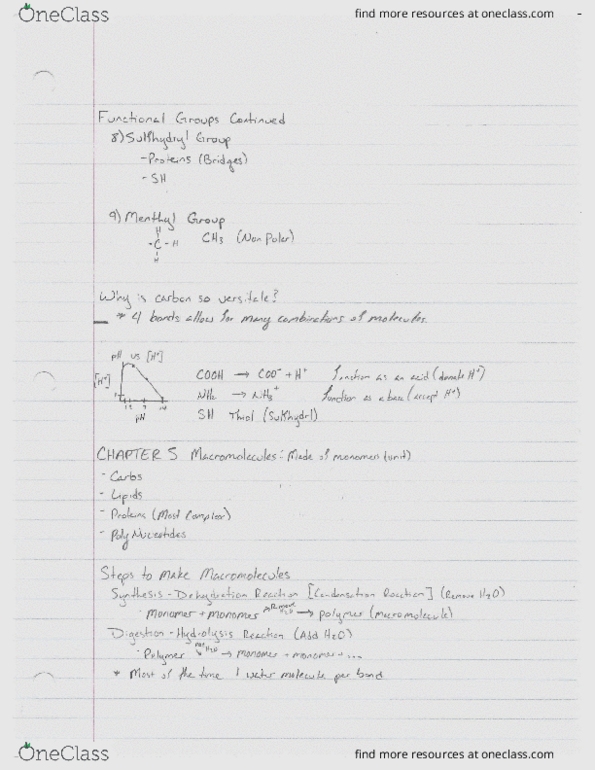 OneClass
find more resources at oneclass.com
Functional Groups Continued
8) Sulfhydryl Group
- Proteins (Bridges)
- SH
9) Menthyl Group
H
- C - H CH3 (Non Poler)
H
Why is carbon so versitale?
* 4 bonds allow for many combinations of molecules.
pH vs [H+]
[H+]
7 14
pH
COOH → COO- + H+ function as an acid (donate H+)
NH2 → NH3+ function as a base (accept H+)
SH Thiol (Sulfhydrl)
CHAPTER 5 Macromolecules: Made of monomers (unit)
- Carbs
- Lipids
- Proteins (Most Complex)
- Poly Nucleotides
Steps to Make Macromolecules
Synthesis - Dehydration Reaction [Condensation Reaction] (Remove H2O)
· Monomer + monomer Remove H2O → polymer (macromolecule)
Digestion - Hydrolysis Reaction (Add H2O)
· Polymer H2O → monomer + monomer + ...
* Most of the time 1 water molecule per bond
OneClass
find more resources at oneclass.com